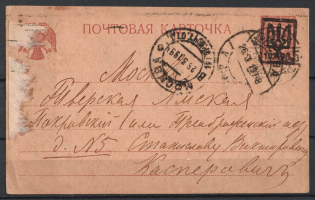 ПОЧТОВАЯ КАРТОЧКА
Москва
Тверская Ямская
Покровский (или Преображенский пер
д. №5 Станиславу Викторовичу
Касперовичъ